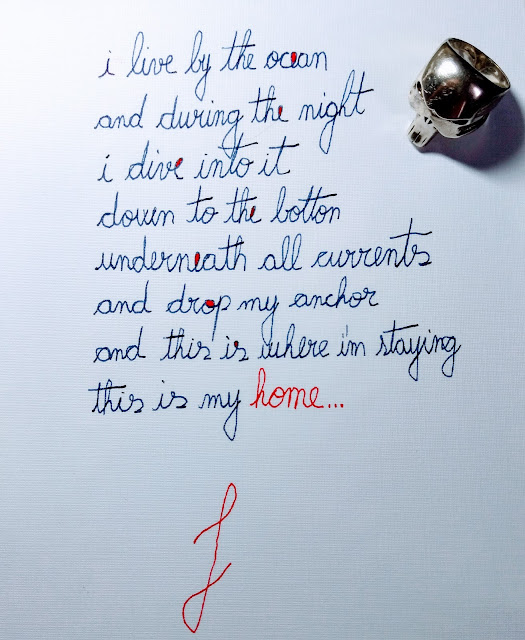 i live by the ocean
and during the night
i dive into it
down to the botton
underneath all currents
and drop my anchor
and this is where i'm staying
this is my home...
J